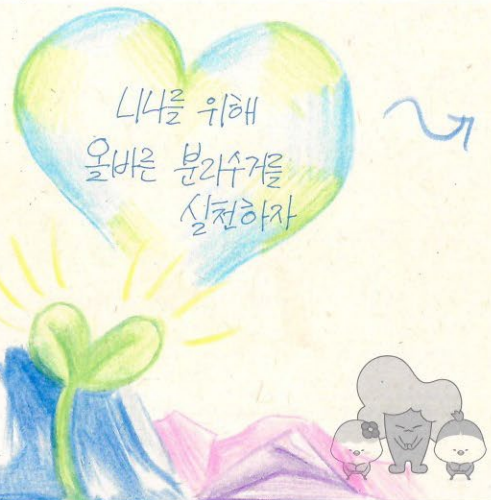 니나를 위해
올바른 분리수거를
실천하자